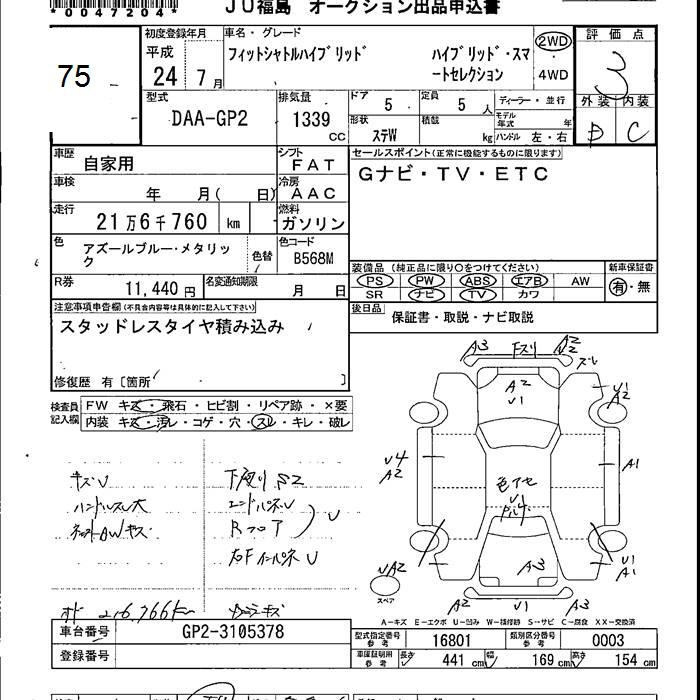 *0047204*
JU福島 オークション出品申込書
75
初度登録年月
平成
24 7月
車名・グレード
フィットシャトルハイブリッド
ハイブリッド・スマートセレクション
2WD
4WD
評価点
3
外装 内装
D C
型式
DAA-GP2
排気量
1339 cc
ドア 5
定員 5人
ディーラー・並行
形状 ステW
積載 kg
モデル年式 年
ハンドル 左・右
車歴 自家用
シフト FAT
車検 年 月( 日)
冷房 AAC
走行 21万6千760 km
燃料 ガソリン
色 アズールブルー・メタリック
色替
色コード B568M
R券 11,440円
名変通知期限 月 日
セールスポイント(正常に機能するものに限ります)
Gナビ・TV・ETC
装備品 (純正品に限り○をつけてください)
新車保証書
PS PW ABS エアB AW
SR ナビ TV カワ
有・無
後日品 保証書・取説・ナビ取説
注意事項申告欄(不具合内容等は具体的に記入して下さい)
スタッドレスタイヤ積み込み
修復歴 有〔箇所 〕
検査員記入欄
FW キズ・飛石・ヒビ割・リペア跡・×要
内装 キズ・汚レ・コゲ・穴・スレ・キレ・破レ
キズU
ハンドルスレ大
下廻り S2
エンドパネルU
Rフロア
U
右FインパネU
216,766km
A3 下スリ A2
A2
U1
U1
A2
U4
A2
A1
色アセ
U1
A3
U1
A1
UA2
スペア
A2 U1 A3
A-キズ E-エクボ U-凹み W-補修跡 S-サビ C-腐食 XX-交換済
車台番号 GP2-3105378
登録番号
型式指定番号 参考 16801
類別区分番号 参考 0003
車庫証明用 参考 長さ 441 cm 幅 169 cm 高さ 154 cm